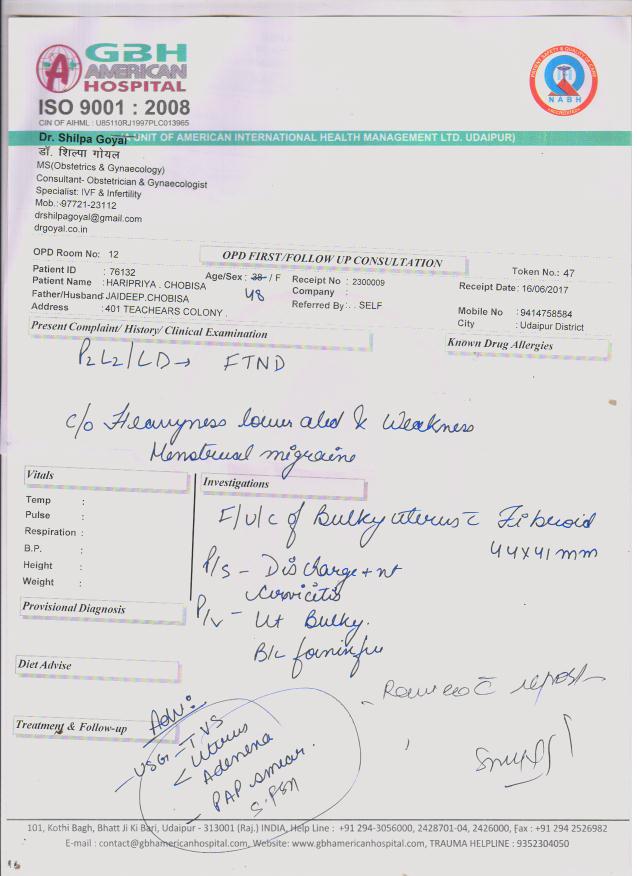 GBH
AMERICAN
HOSPITAL
ISO 9001 : 2008
CIN OF AIHML : U85110RJ1997PLC013965
PATIENT SAFETY & QUALITY OF CARE
NABH
Dr. Shilpa Goyal UNIT OF AMERICAN INTERNATIONAL HEALTH MANAGEMENT LTD. UDAIPUR)
डॉ. शिल्पा गोयल
MS(Obstetrics & Gynaecology)
Consultant- Obstetrician & Gynaecologist
Specialist: IVF & Infertility
Mob.:-97721-23112
drshilpagoyal@gmail.com
drgoyal.co.in
OPD Room No: 12
OPD FIRST/FOLLOW UP CONSULTATION
Token No.: 47
Patient ID : 76132 Age/Sex : 38 / F Receipt No : 2300009 Receipt Date: 16/06/2017
48
Patient Name : HARIPRIYA . CHOBISA Company :
Father/Husband : JAIDEEP.CHOBISA Referred By : . SELF Mobile No : 9414758584
Address : 401 TEACHEARS COLONY . City : Udaipur District
Present Complaint/ History/ Clinical Examination
Known Drug Allergies
P2L2/LD→ FTND
c/o Heavyness lower abd & Weakness
Menstrual migraine
Vitals
Temp :
Pulse :
Respiration :
B.P. :
Height :
Weight :
Investigations
F/U/C of Bulky uterus c̄ Fibroid
44X41 mm
P/S - Discharge + nt
cervicitis
P/V - Ut Bulky.
B/L
Provisional Diagnosis
Diet Advise
Treatment & Follow-up
Adv:
- USG - TVS
< Uterus
Adenexa
- PAP smear.
c̄ report
101, Kothi Bagh, Bhatt Ji Ki Bari, Udaipur - 313001 (Raj.) INDIA, Help Line : +91 294-3056000, 2428701-04, 2426000, Fax : +91 294 2526982
E-mail : contact@gbhamericanhospital.com, Website: www.gbhamericanhospital.com, TRAUMA HELPLINE : 9352304050